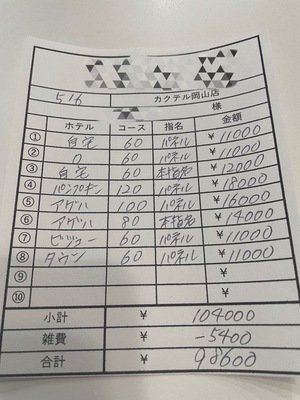 5/6 カクテル岡山店
様
ホテル コース 指名 金額
① 自宅 60 パネル ¥11000
② O 60 パネル ¥11000
③ 自宅 60 本指名 ¥12000
④ パンプキン 120 パネル ¥18000
⑤ アゲハ 100 パネル ¥16000
⑥ アゲハ 80 本指名 ¥14000
⑦ ビジュー 60 パネル ¥11000
⑧ タウン 60 パネル ¥11000
⑨ ¥
⑩ ¥
小計 ¥ 104000
雑費 ¥ -5400
合計 ¥ 98600